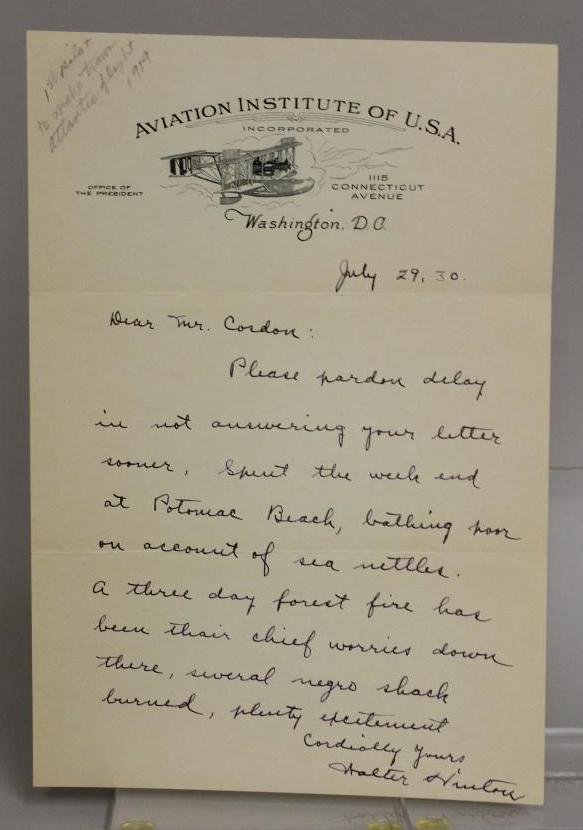 1st pilot
to make trans
atlantic flight
1919
AVIATION INSTITUTE OF U.S.A.
INCORPORATED
OFFICE OF
THE PRESIDENT
1115
CONNECTICUT
AVENUE
Washington, D.C.
July 29, 30.
Dear Mr. Cordon:
Please pardon delay
in not answering your letter
sooner, Spent the week end
at Potomac Beach, bathing poor
on account of sea nettles.
A three day forest fire has
been thair chief worries down
there, several negro shack
burned, plenty excitement
Cordially Yours
Walter Hinton